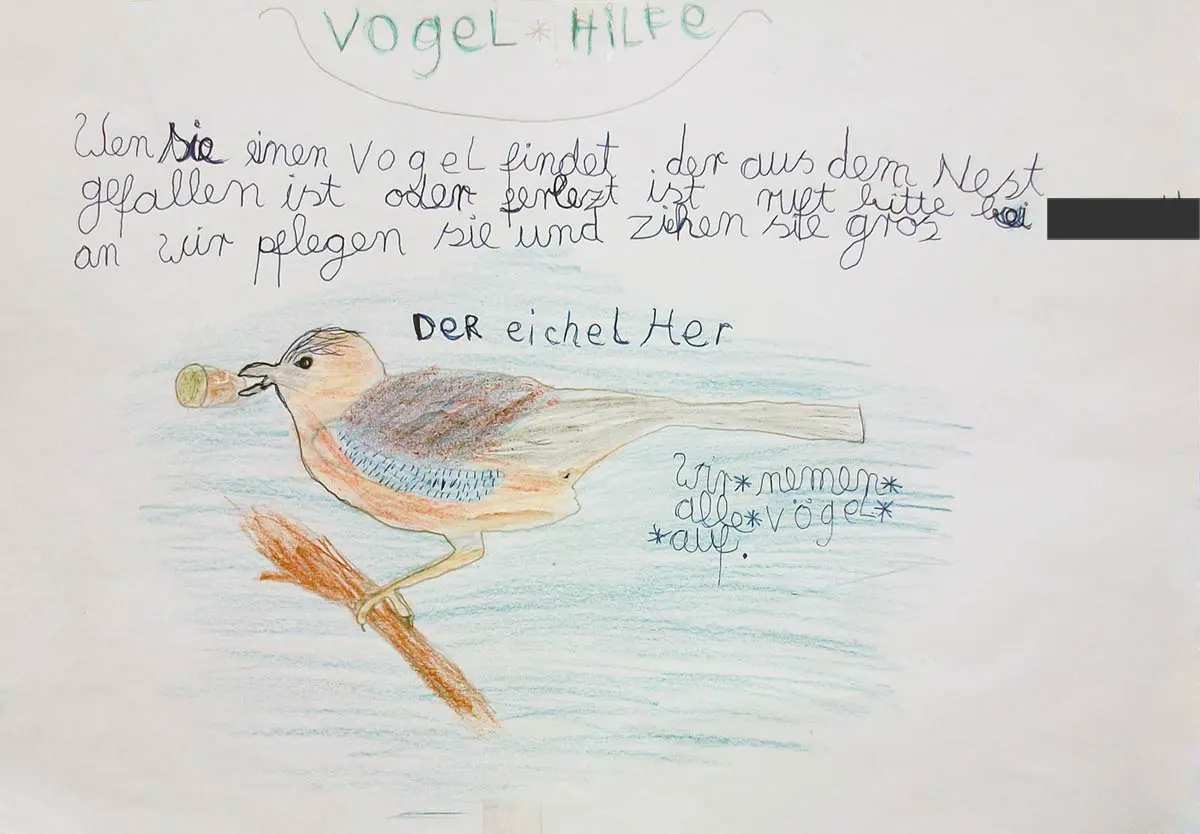 VogeL * HiLFe
Wen sie einen VogeL findet der aus dem Nest
gefallen ist oder ferlezt ist ruft bitte bei
an wir pflegen sie und ziehen sie gros
DeR eichel Her
Wir*nemen*
alle*vögeL*
*auf.